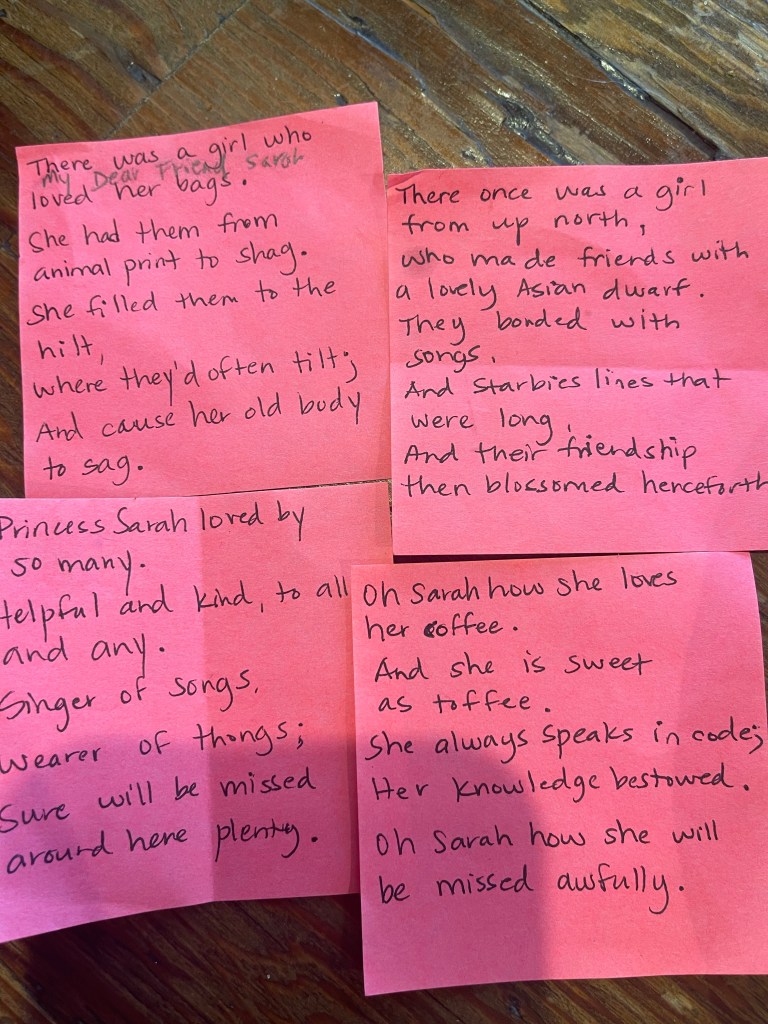 There was a girl who
My Dear Friend Sarah
loved her bags.
She had them from
animal print to shag.
She filled them to the
hilt,
where they'd often tilt;
And cause her old body
to sag.
There once was a girl
from up north,
who made friends with
a lovely Asian dwarf.
They bonded with
songs,
And Starbies lines that
were long,
And their friendship
then blossomed henceforth
Princess Sarah loved by
so many.
Helpful and kind, to all
and any.
Singer of songs,
Wearer of thongs;
Sure will be missed
around here plenty.
Oh Sarah how she loves
her coffee.
And she is sweet
as toffee.
She always speaks in code;
Her knowledge bestowed.
Oh Sarah how she will
be missed awfully.